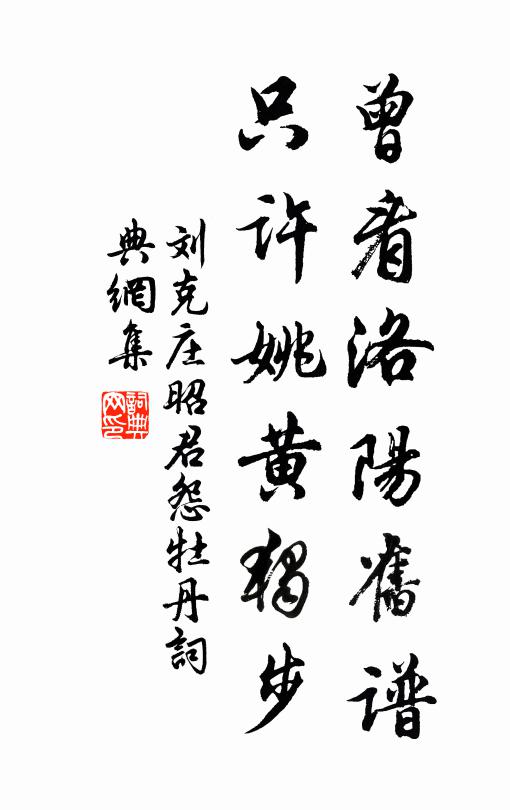 曾看洛陽舊譜
只許姚黃獨步
刘克庄昭君怨牡丹詞
典網集
詞典網印